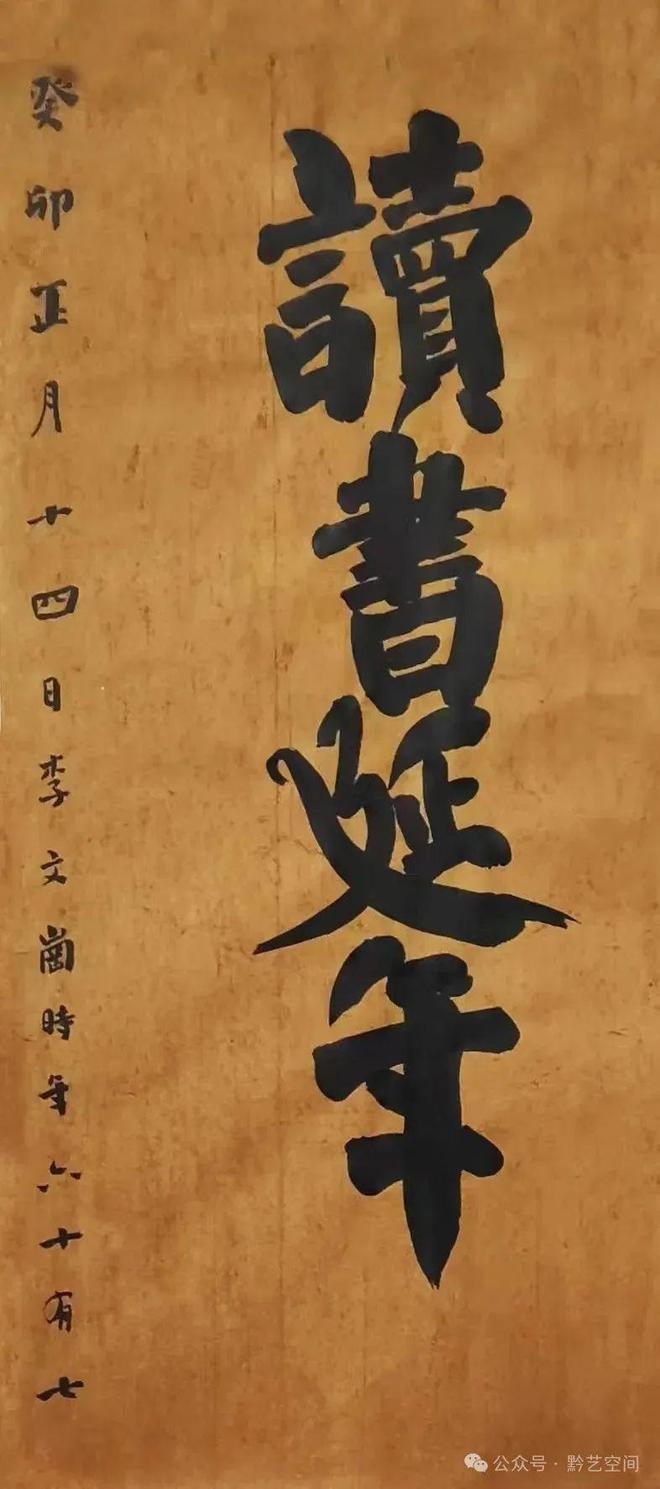 讀書延年
癸卯正月十四日李文崗時年六十有七
公众号 · 黔艺空间